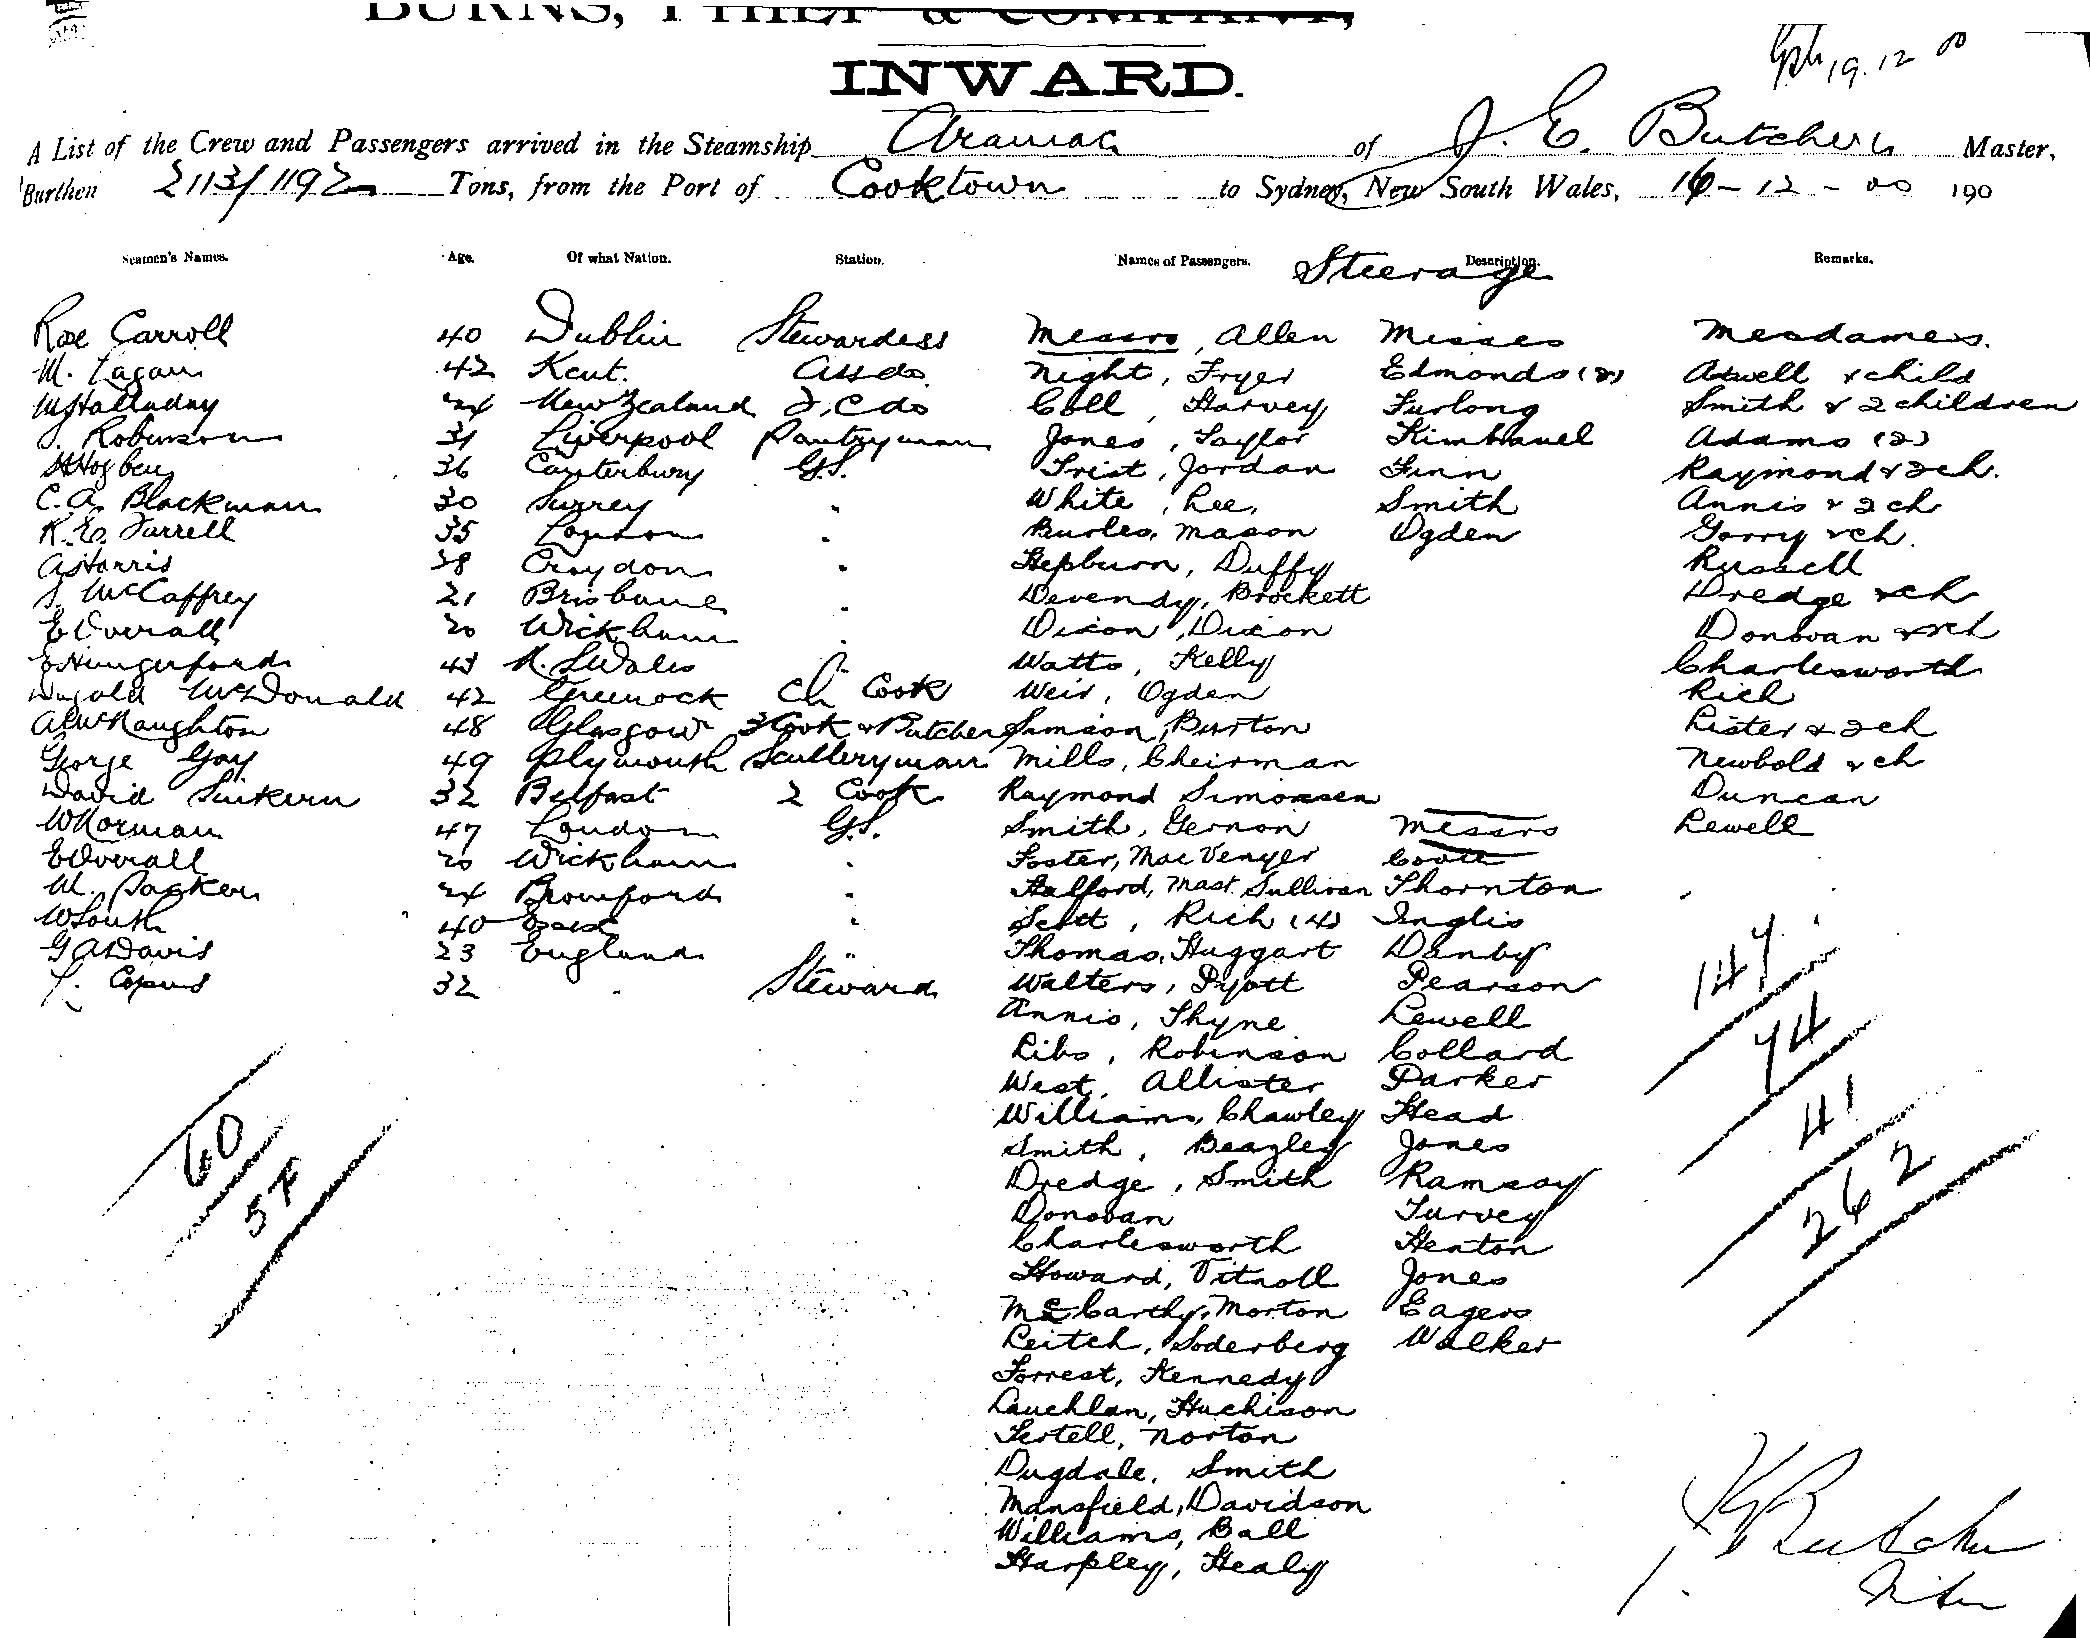 BURNS, PHILP & COMPANY,
INWARD.
19.12.00
A List of the Crew and Passengers arrived in the Steamship Aramac of J. E. Butcher Master,
Burthen 2113/1192 Tons, from the Port of Cooktown to Sydney, New South Wales, 16-12-00 190
Seamen's Names. Age. Of what Nation. Station. Names of Passengers. Steerage Description. Remarks.
Rose Carroll 40 Dublin Stewardess Messrs, Allen Misses Mesdames.
M. Lagan 42 Kent. Ass do. Night, Fryer Edmonds (2) Atwell & child
24 New Zealand do Coll, Harvey Furlong Smith & 2 children
Robinson 31 Liverpool Pantryman Jones, Taylor Adams (2)
Hogben 36 Canterbury G.S. Trist, Jordan Finn Raymond & 2 ch.
C. A. Blackman 30 Surrey " White, Lee, Smith Annis & 2 ch
R. E. Farrell 35 London " Burles, Mason Ogden Gorry & ch.
A Harris 38 Croydon " Hepburn, Duffy Russell
J McCaffrey 21 Brisbane " Devendy, Brockett Dredge & ch
E Overall 20 Wickham " Dixon, Dixon Donovan & ch
E Hungerford N. S Wales " Watts, Kelly Charlesworth
Dugald McDonald 42 Greenock Ch Cook Weir, Ogden Rich
A McNaughton 48 Glasgow 3 Cook & Butcher Simson, Burton Lister & 2 ch
George Gay 49 Plymouth Sculleryman Mills, Cheirman Newbold & ch
David 32 Belfast 2 Cook Raymond Simonsen Duncan
W Norman 47 London G.S. Smith, Gernon Messrs Lewell
E Overall 20 Wickham " Foster, Mac Venyer Coote
W. Parker 24 " Halford, Mast. Sullivan Thornton
W South 40 " Scott, Rich (4) Inglis
G A Davis 23 England " Thomas, Huggart Danby
Copus 32 " Steward Walters, Pyott Pearson
Annis, Thyne Lewell
Libs, Robinson Collard
West, Allister Parker
Williams, Chawley Head
Smith, Beazley Jones
Dredge, Smith Ramsay
Donovan Turvey
Charlesworth Heaton
Howard, Titnoll Jones
McCarthy, Morton Eagers
Leitch, Soderberg Walker
Forrest, Kennedy
Lauchlan, Huchison
Sertell, Norton
Dugdale, Smith
Mansfield, Davidson
Williams, Ball
Harpley, Healy
60
57
147
74
41
262
Butcher